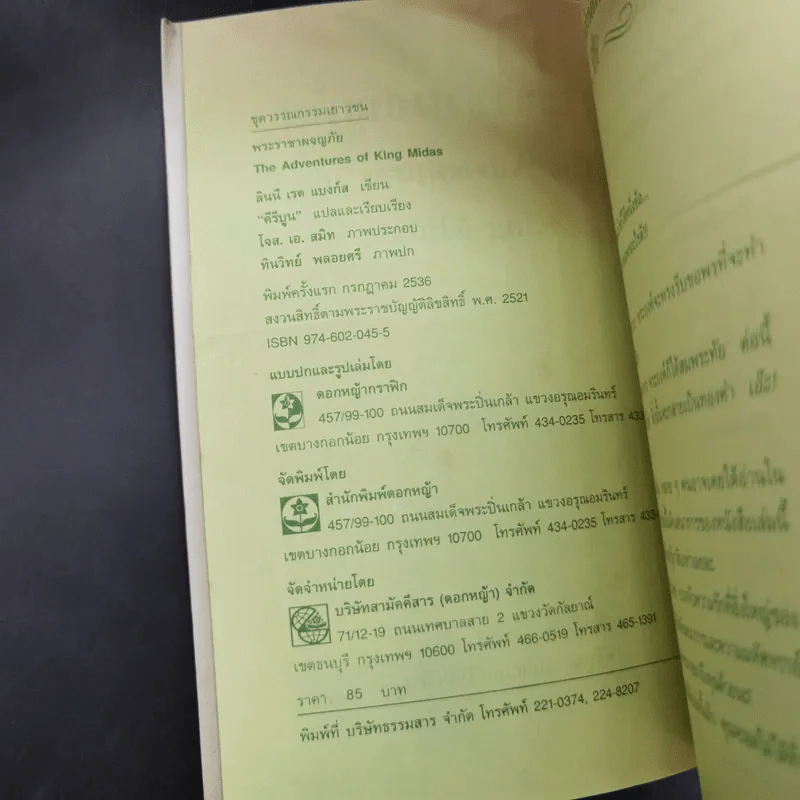 ชุดวรรณกรรมเยาวชน
พระราชาผจญภัย
The Adventures of King Midas
ลินนี เรด แบงก์ส เขียน
"คีรีบูน" แปลและเรียบเรียง
โจส. เอ. สมิท ภาพประกอบ
ทินวิทย์ พลอยศรี ภาพปก
พิมพ์ครั้งแรก กรกฎาคม 2536
สงวนสิทธิ์ตามพระราชบัญญัติลิขสิทธิ์ พ.ศ. 2521
ISBN 974-602-045-5
แบบปกและรูปเล่มโดย
ดอกหญ้ากราฟิก
457/99-100 ถนนสมเด็จพระปิ่นเกล้า แขวงอรุณอมรินทร์
เขตบางกอกน้อย กรุงเทพฯ 10700 โทรศัพท์ 434-0235 โทรสาร 433
จัดพิมพ์โดย
สำนักพิมพ์ดอกหญ้า
457/99-100 ถนนสมเด็จพระปิ่นเกล้า แขวงอรุณอมรินทร์
เขตบางกอกน้อย กรุงเทพฯ 10700 โทรศัพท์ 434-0235 โทรสาร 433
จัดจำหน่ายโดย
บริษัทสามัคคีสาร (ดอกหญ้า) จำกัด
71/12-19 ถนนเทศบาลสาย 2 แขวงวัดกัลยาณ์
เขตธนบุรี กรุงเทพฯ 10600 โทรศัพท์ 466-0519 โทรสาร 465-1391
ราคา 85 บาท
พิมพ์ที่ บริษัทธรรมสาร จำกัด โทรศัพท์ 221-0374, 224-8207
พระองค์จะทรงรับขอพรที่จะทำ
พระองค์ก็ได้สมพระทัย ต่อนี้
จะกลายเป็นทองคำ เย๊ะ!
ๆ คนอาจเคยได้อ่านใน
ของหนังสือเล่มนี้